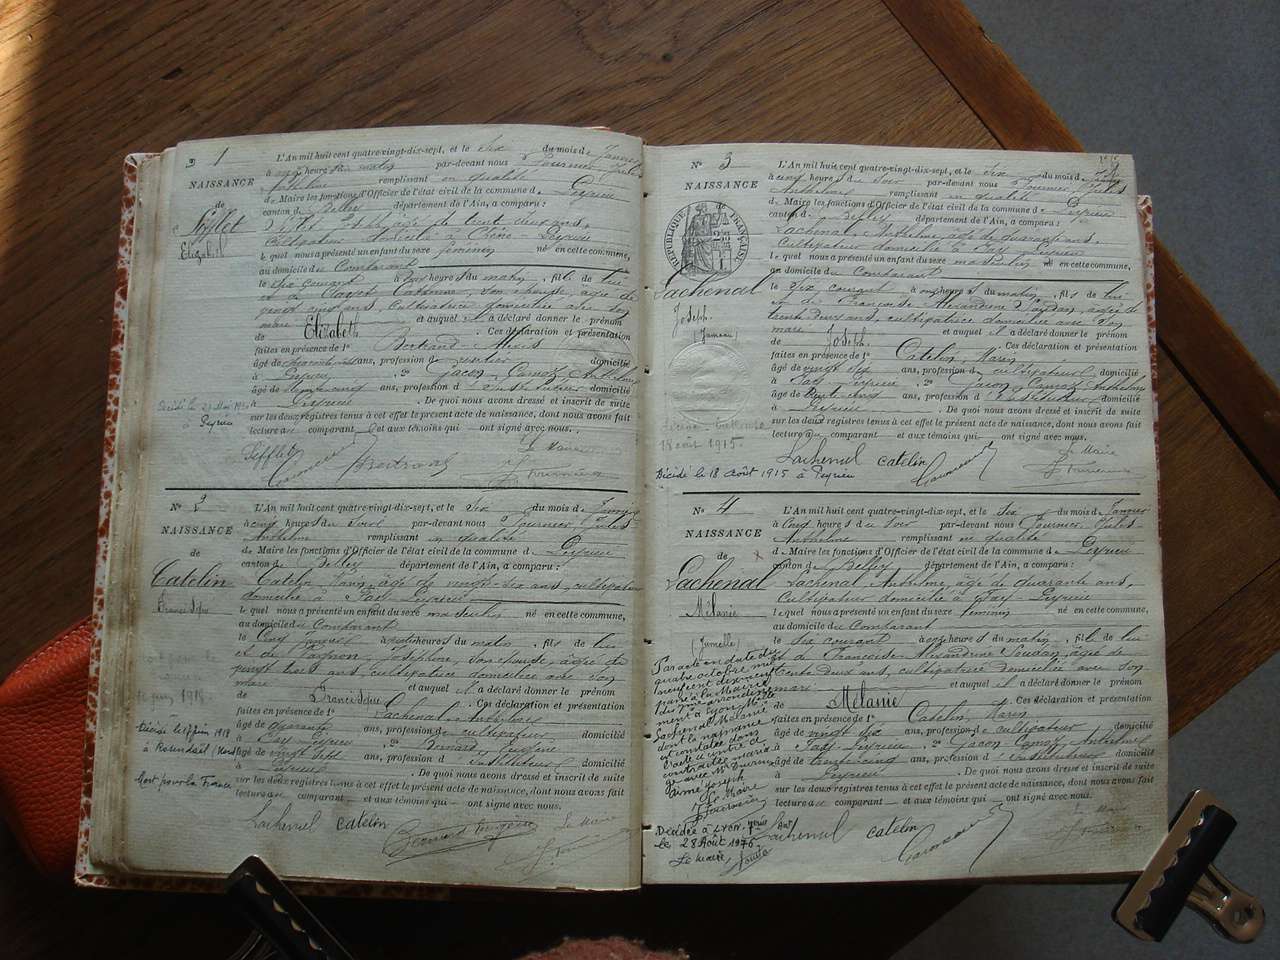 1
NAISSANCE
de
Sifflet
Elizabeth
L'An mil huit cent quatre-vingt-dix-sept, et le Six du mois de Janvier
à heures du matin par-devant nous Fournier Jules
Anthelme remplissant en qualité
de Maire les fonctions d'Officier de l'état civil de la commune de Peyrieu
canton de Belley département de l'Ain, a comparu :
âgé de trente deux ans,
cultivateur domicilié à Peyrieu
lequel nous a présenté un enfant du sexe féminin né en cette commune,
au domicile du Comparant
le Six courant à heures du matin, fille de lui
et de son épouse, âgée de
vingt cinq ans, cultivatrice domiciliée avec son
mari et auquel il a déclaré donner le prénom
de Elizabeth . Ces déclaration et présentation
faites en présence de 1° Bertrand Alexis
âgé de ans, profession de domicilié
à Peyrieu , 2° Jacon Camoz Anthelme
âgé de trente cinq ans, profession d' instituteur domicilié
à Peyrieu . De quoi nous avons dressé et inscrit de suite
sur les deux registres tenus à cet effet le présent acte de naissance, dont nous avons fait
lecture au comparant et aux témoins qui ont signé avec nous.
à Peyrieu
Sifflet
Bertrand
Le Maire
J. Fournier
N° 2
NAISSANCE
de
Catelin
Francisque
L'An mil huit cent quatre-vingt-dix-sept, et le Six du mois de Janvier
à cinq heures du soir par-devant nous Fournier Jules
Anthelme remplissant en qualité
de Maire les fonctions d'Officier de l'état civil de la commune de Peyrieu
canton de Belley département de l'Ain, a comparu :
Catelin Marin, âgé de vingt-six ans, cultivateur
domicilié à Fay Peyrieu
lequel nous a présenté un enfant du sexe masculin né en cette commune,
au domicile du Comparant
le Cinq à heures du matin, fils de lui
et de Joséphine, son épouse, âgée de
vingt trois ans, cultivatrice domiciliée avec son
mari et auquel il a déclaré donner le prénom
de Francisque . Ces déclaration et présentation
faites en présence de 1° Lachenal Anthelme
âgé de quarante ans, profession de cultivateur domicilié
à Fay Peyrieu , 2° Bernard Eugène
âgé de vingt sept ans, profession d' instituteur domicilié
à Peyrieu . De quoi nous avons dressé et inscrit de suite
sur les deux registres tenus à cet effet le présent acte de naissance, dont nous avons fait
lecture au comparant et aux témoins qui ont signé avec nous.
Décédé le 1er juin 1918
à Rosendaël (Nord)
Mort pour la France
Lachenal catelin Bernard Eugène
Le Maire
J. Fournier
N° 3
NAISSANCE
RÉPUBLIQUE FRANÇAISE
Lachenal
Joseph
(Jumeau)
L'An mil huit cent quatre-vingt-dix-sept, et le Six du mois de Janvier
à cinq heures du soir par-devant nous Fournier Jules
Anthelme remplissant en qualité
de Maire les fonctions d'Officier de l'état civil de la commune de Peyrieu
canton de Belley département de l'Ain, a comparu :
Lachenal, Anthelme âgé de quarante ans,
cultivateur domicilié à Fay Peyrieu
lequel nous a présenté un enfant du sexe masculin né en cette commune,
au domicile du Comparant
le Six courant à onze heures du matin, fils de lui
et de Françoise Alexandrine Joudan, âgée de
trente deux ans, cultivatrice domiciliée avec son
mari et auquel il a déclaré donner le prénom
de Joseph. . Ces déclaration et présentation
faites en présence de 1° Catelin, Marin
âgé de vingt six ans, profession de cultivateur domicilié
à Fay Peyrieu , 2° Jacon Camoz Anthelme
âgé de trente cinq ans, profession d' instituteur domicilié
à Peyrieu . De quoi nous avons dressé et inscrit de suite
sur les deux registres tenus à cet effet le présent acte de naissance, dont nous avons fait
lecture au comparant et aux témoins qui ont signé avec nous.
18 août 1915.
Décédé le 18 Août 1915 à Peyrieu
Lachenal catelin
Le Maire
J. Fournier
N° 4
NAISSANCE
de
Lachenal
Mélanie
(Jumelle)
L'An mil huit cent quatre-vingt-dix-sept, et le Six du mois de Janvier
à cinq heures du soir par-devant nous Fournier Jules
Anthelme remplissant en qualité
de Maire les fonctions d'Officier de l'état civil de la commune de Peyrieu
canton de Belley département de l'Ain, a comparu :
Lachenal Anthelme, âgé de quarante ans,
cultivateur domicilié à Fay Peyrieu
lequel nous a présenté un enfant du sexe féminin né en cette commune,
au domicile du Comparant
le six courant à onze heures du matin, fille de lui
et de Françoise Alexandrine Joudan âgée de
trente deux ans, cultivatrice domiciliée avec son
mari et auquel il a déclaré donner le prénom
de Mélanie . Ces déclaration et présentation
faites en présence de 1° Catelin, Marin
âgé de vingt six ans, profession de cultivateur domicilié
à Fay Peyrieu , 2° Jacon Camoz Anthelme
âgé de trente cinq ans, profession d' instituteur domicilié
à Peyrieu . De quoi nous avons dressé et inscrit de suite
sur les deux registres tenus à cet effet le présent acte de naissance, dont nous avons fait
lecture au comparant et aux témoins qui ont signé avec nous.
Par acte en date du
quatre octobre mil
neuf cent dix neuf
par la Mairie
du arrondisse
ment à Lyon, Melle
Lachenal Mélanie
dont la naissance
est constatée dans
l'acte ci-contre a
contracté maria
ge avec Mr
Aimé Joseph
Le Maire
J. Fournier
Décédée à Lyon
le 28 Août 1976
Le Maire,
Lachenal catelin
Le Maire
J. Fournier